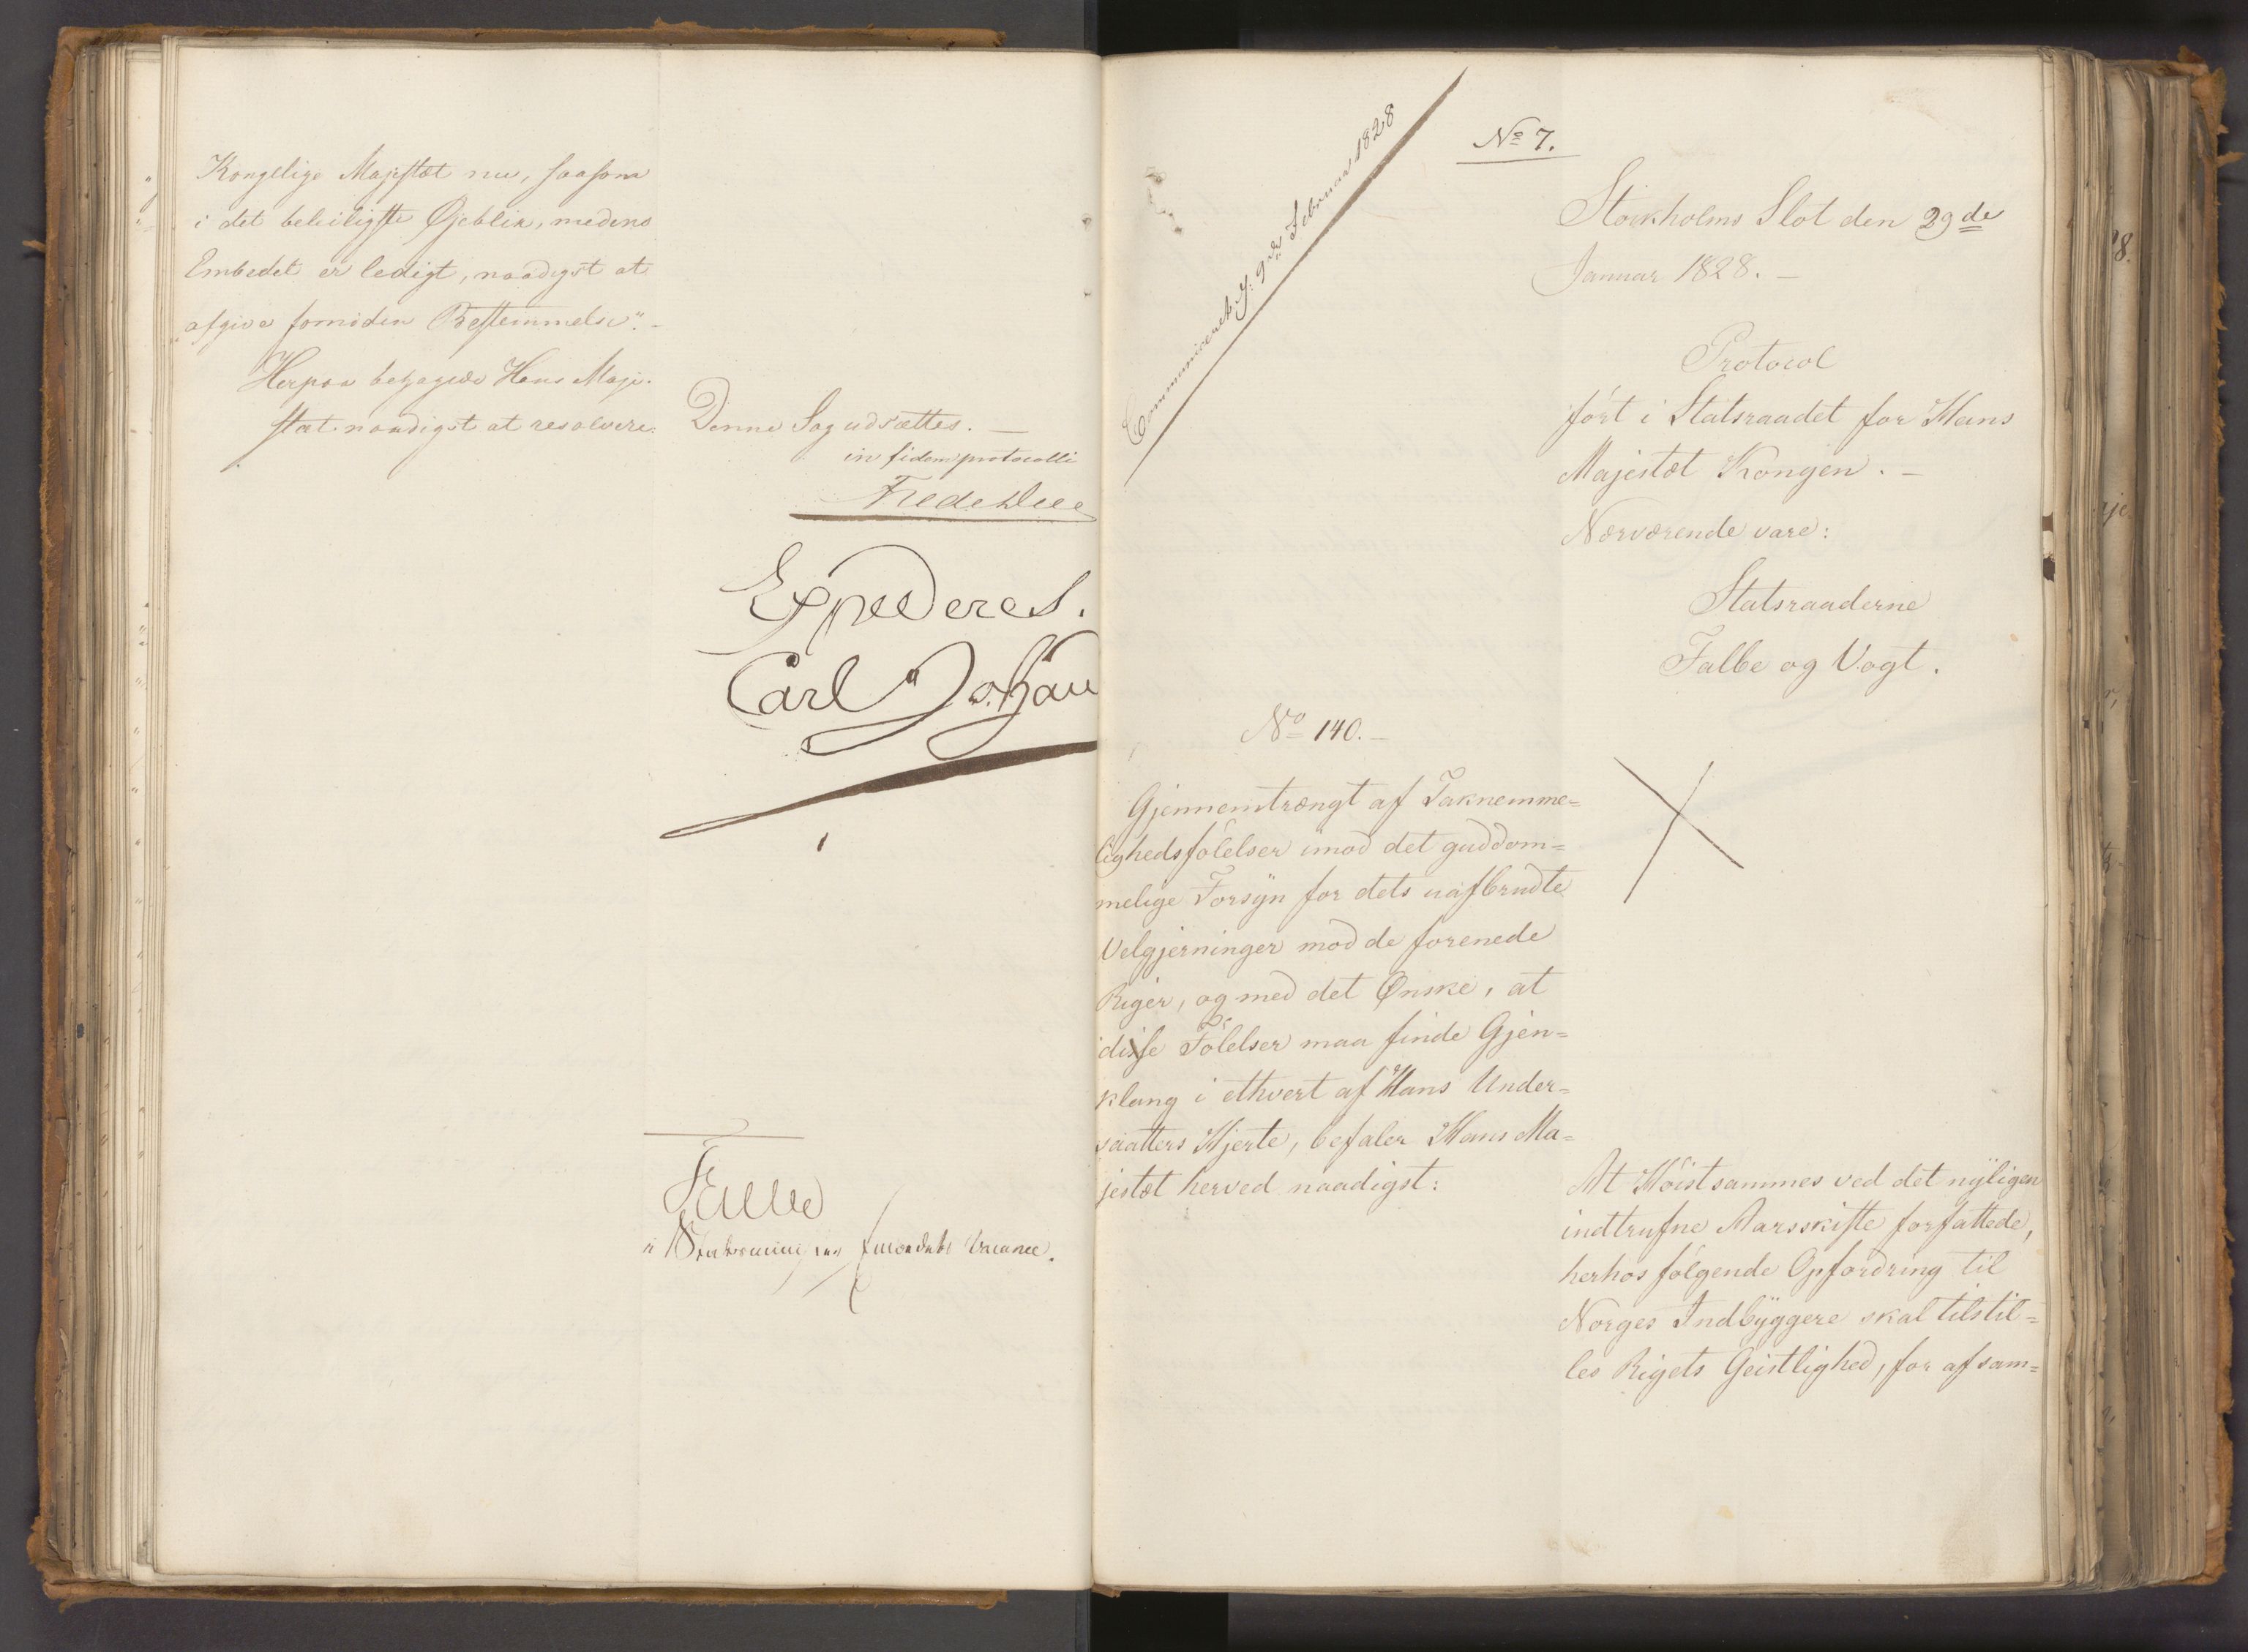 Kongelige Majestæt nu, saasom
i det beleiligste Øjeblik, medens
Embedet er ledigt, naadigst at
afgive fornøden Bestemmelse".-
Herpaa behagede Hans Maje-
stæt naadigst at resolvere:
Denne Sag udsættes. —
in fidem protocolli
Fredr Due
Expederes.
Carl Johan
Falbe
i Statsministerens Embedets Vacance.
Communiceret d: 9de Februar 1828
No 7.
Stockholms Slot den 29de
Januar 1828. —
Protocol
ført i Statsraadet for Hans
Majestæt Kongen. —
Nærværende vare:
Statsraaderne
Falbe og Vogt.
No 140. —
Gjennemtrængt af Taknemme=
lighedsfølelser imod det guddom=
melige Forsyn for dets uafbrudte
Velgjerninger mod de forenede
Riger, og med det Ønske, at
disse Følelser maa finde Gjen=
klang i ethvert af Hans Under=
saatters Hjerte, befaler Hans Ma=
jestæt herved naadigst:
At Høistsammes ved det nyligen
indtrufne Aarsskifte forfattede,
herhos følgende Opfordring til
Norges Indbyggere skal tilstil=
les Rigets Geistlighed, for af sam=